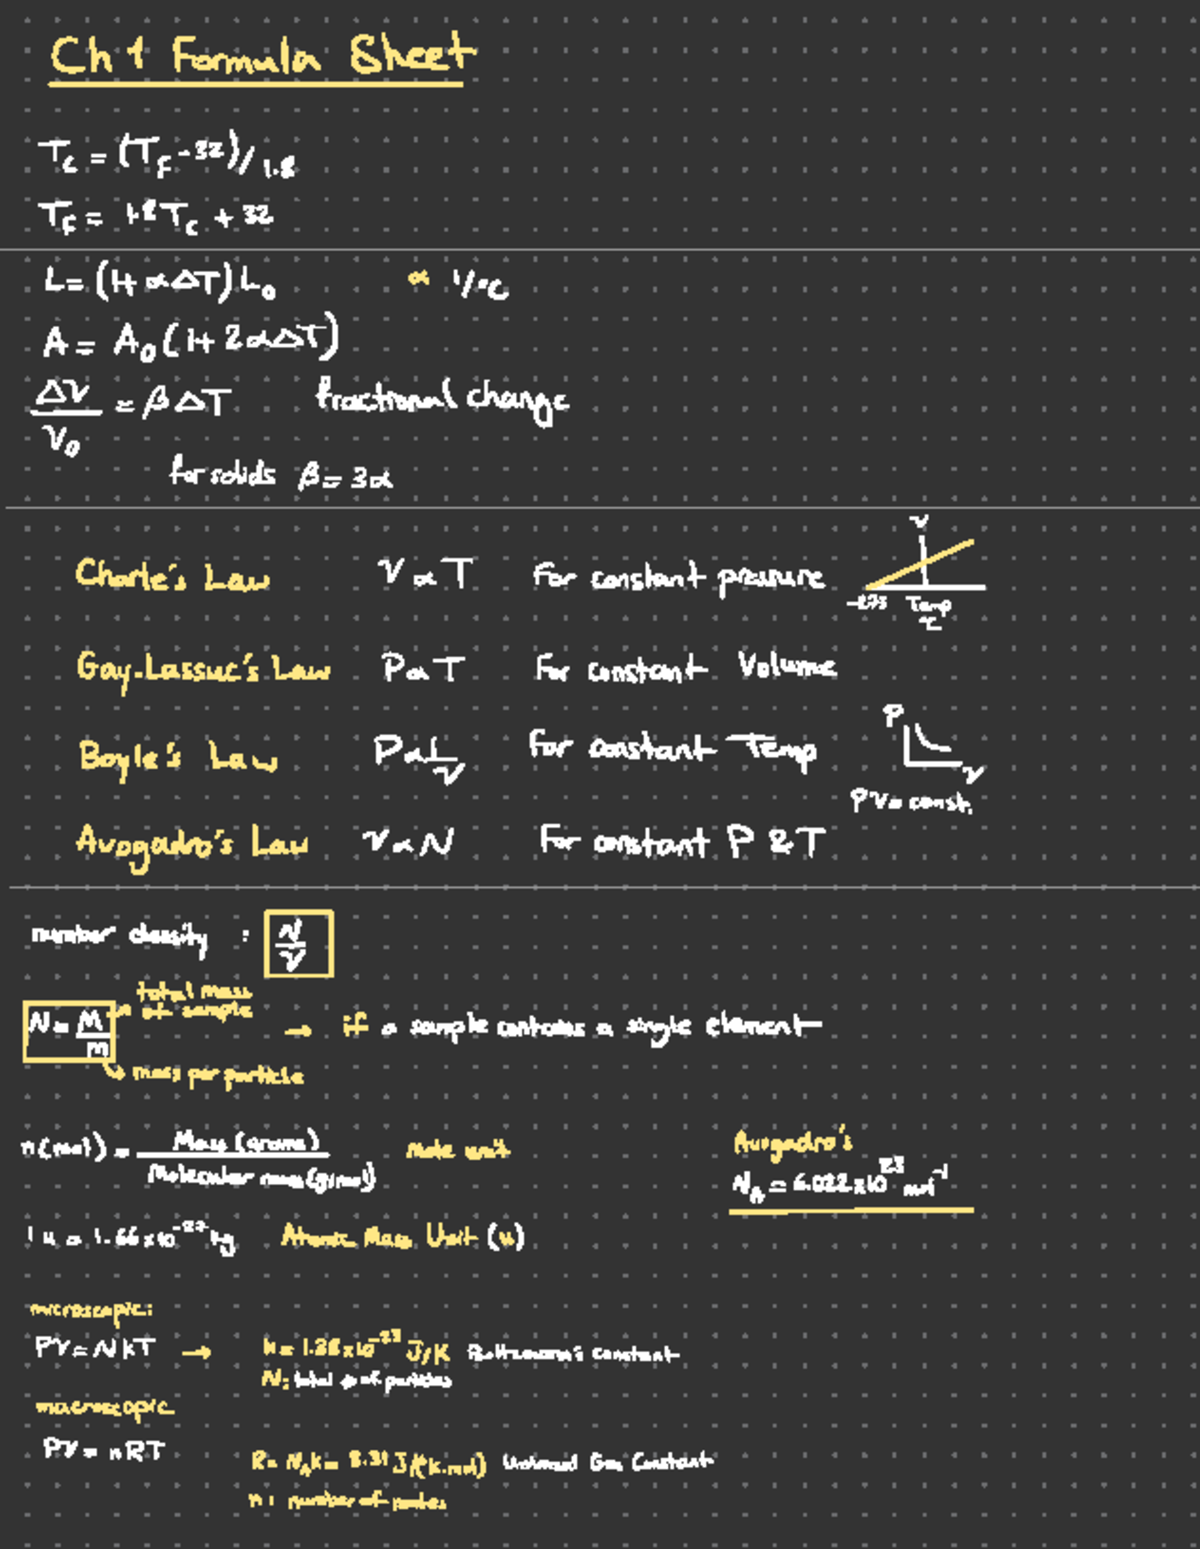 Ch 1 Formula Sheet
T_C = (T_F - 32)/1.8
T_F = 1.8 T_C + 32
L = (1 + α ΔT) L_0    α 1/°C
A = A_0 (1 + 2αΔT)
ΔV/V_0 = β ΔT    fractional change
for solids β = 3α
Charle's Law    V α T    For constant pressure
V
-273 Temp °C
Gay-Lassuc's Law    P α T    For constant Volume
Boyle's Law    P α 1/V    For constant Temp
P
V
PV = const.
Avogadro's Law    V α N    For constant P & T
number density : N/V
N = M/m
total mass of sample
→ if a sample contains a single element
mass per particle
n(mol) = Mass (grams) / Molecular mass (g/mol)    mole unit
Avogadro's
N_A = 6.022 x 10^23 mol^-1
1 u = 1.66 x 10^-27 kg    Atomic Mass Unit (u)
microscopic:
PV = NkT → k = 1.38 x 10^-23 J/K Boltzmann's constant
N: total # of particles
macroscopic
PV = nRT
R = N_A k = 8.31 J/(K.mol) Universal Gas Constant
n : number of moles